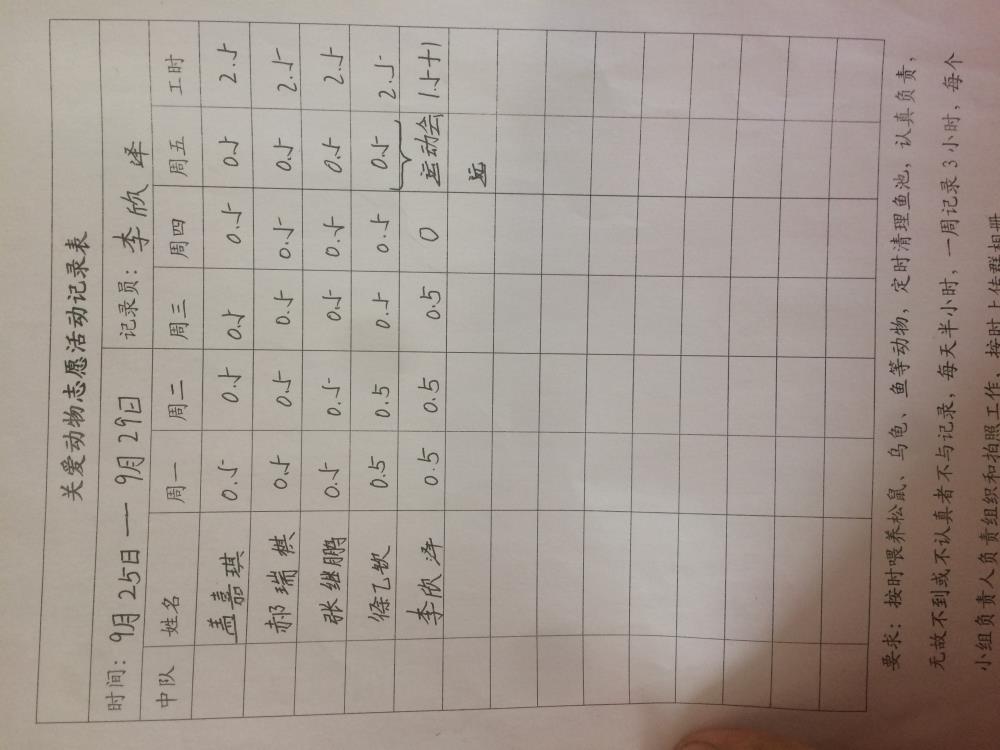 关爱动物志愿活动记录表
时间: 9月25日 — 9月29日 记录员: 李欣泽
中队 姓名 周一 周二 周三 周四 周五 工时
盖嘉琪 0.5 0.5 0.5 0.5 0.5 2.5
郝瑞棋 0.5 0.5 0.5 0.5 0.5 2.5
张继鹏 0.5 0.5 0.5 0.5 0.5 2.5
徐乙钦 0.5 0.5 0.5 0.5 0.5 2.5
李欣泽 0.5 0.5 0.5 0 运动会 1.5+1
要求: 按时喂养松鼠、乌龟、鱼等动物, 定时清理鱼池, 认真负责,
无故不到或不认真者不与记录, 每天半小时, 一周记录3小时, 每个
小组负责人负责组织和拍照工作, 按时上传群相册